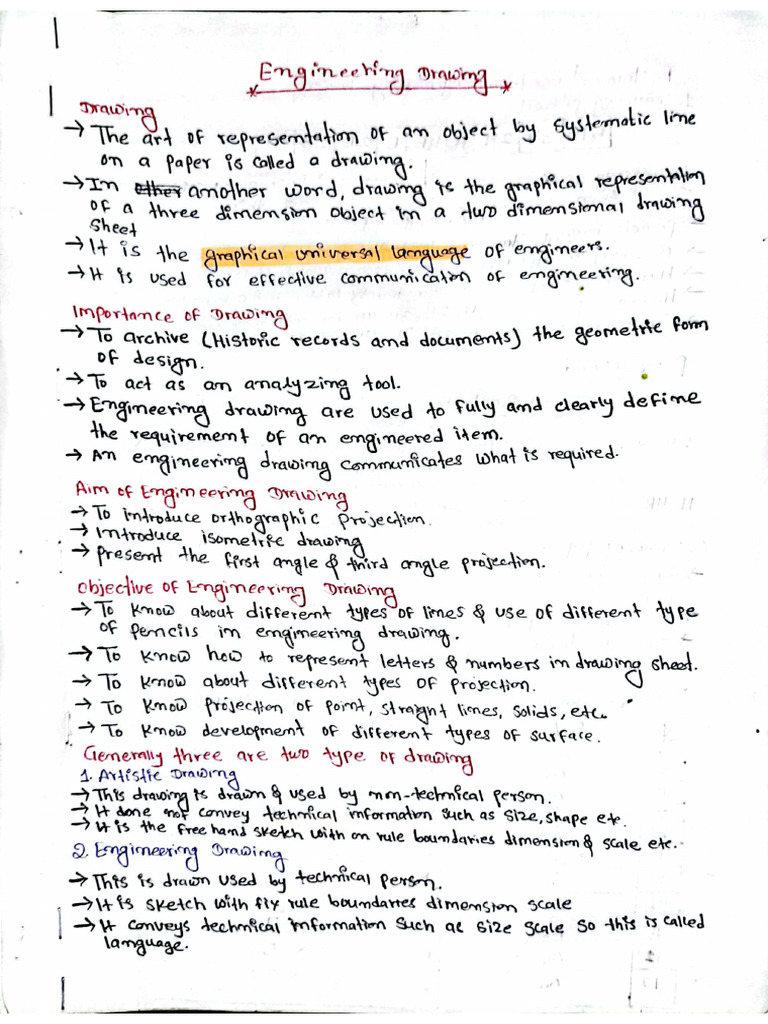 Engineering Drawing
Drawing
→ The art of representation of an object by systematic line
on a paper is called a drawing.
→ In other another word, drawing is the graphical representation
of a three dimension object in a two dimensional drawing
sheet
→ It is the graphical universal language of engineers.
→ It is used for effective communication of engineering.
Importance of Drawing
→ To archive (Historic records and documents) the geometric form
of design.
→ To act as an analyzing tool.
→ Engineering drawing are used to fully and clearly define
the requirement of an engineered item.
→ An engineering drawing communicates what is required.
Aim of Engineering Drawing
→ To introduce orthographic projection.
→ Introduce isometric drawing
→ present the first angle & third angle projection.
Objective of Engineering Drawing
→ To know about different types of lines & use of different type
of pencils in engineering drawing.
→ To know how to represent letters & numbers in drawing sheet.
→ To know about different types of projection.
→ To know projection of point, straight lines, solids, etc.
→ To know development of different types of surface.
Generally three are two type of drawing
1. Artistic Drawing
→ This drawing is drawn & used by non-technical person.
→ It done not convey technical information such as size, shape etc.
→ It is the free hand sketch with on rule boundaries dimension & scale etc.
2. Engineering Drawing
→ This is drawn used by technical person.
→ It is sketch with fix rule boundaries dimension scale
→ It conveys technical information such as size scale so this is called
language.